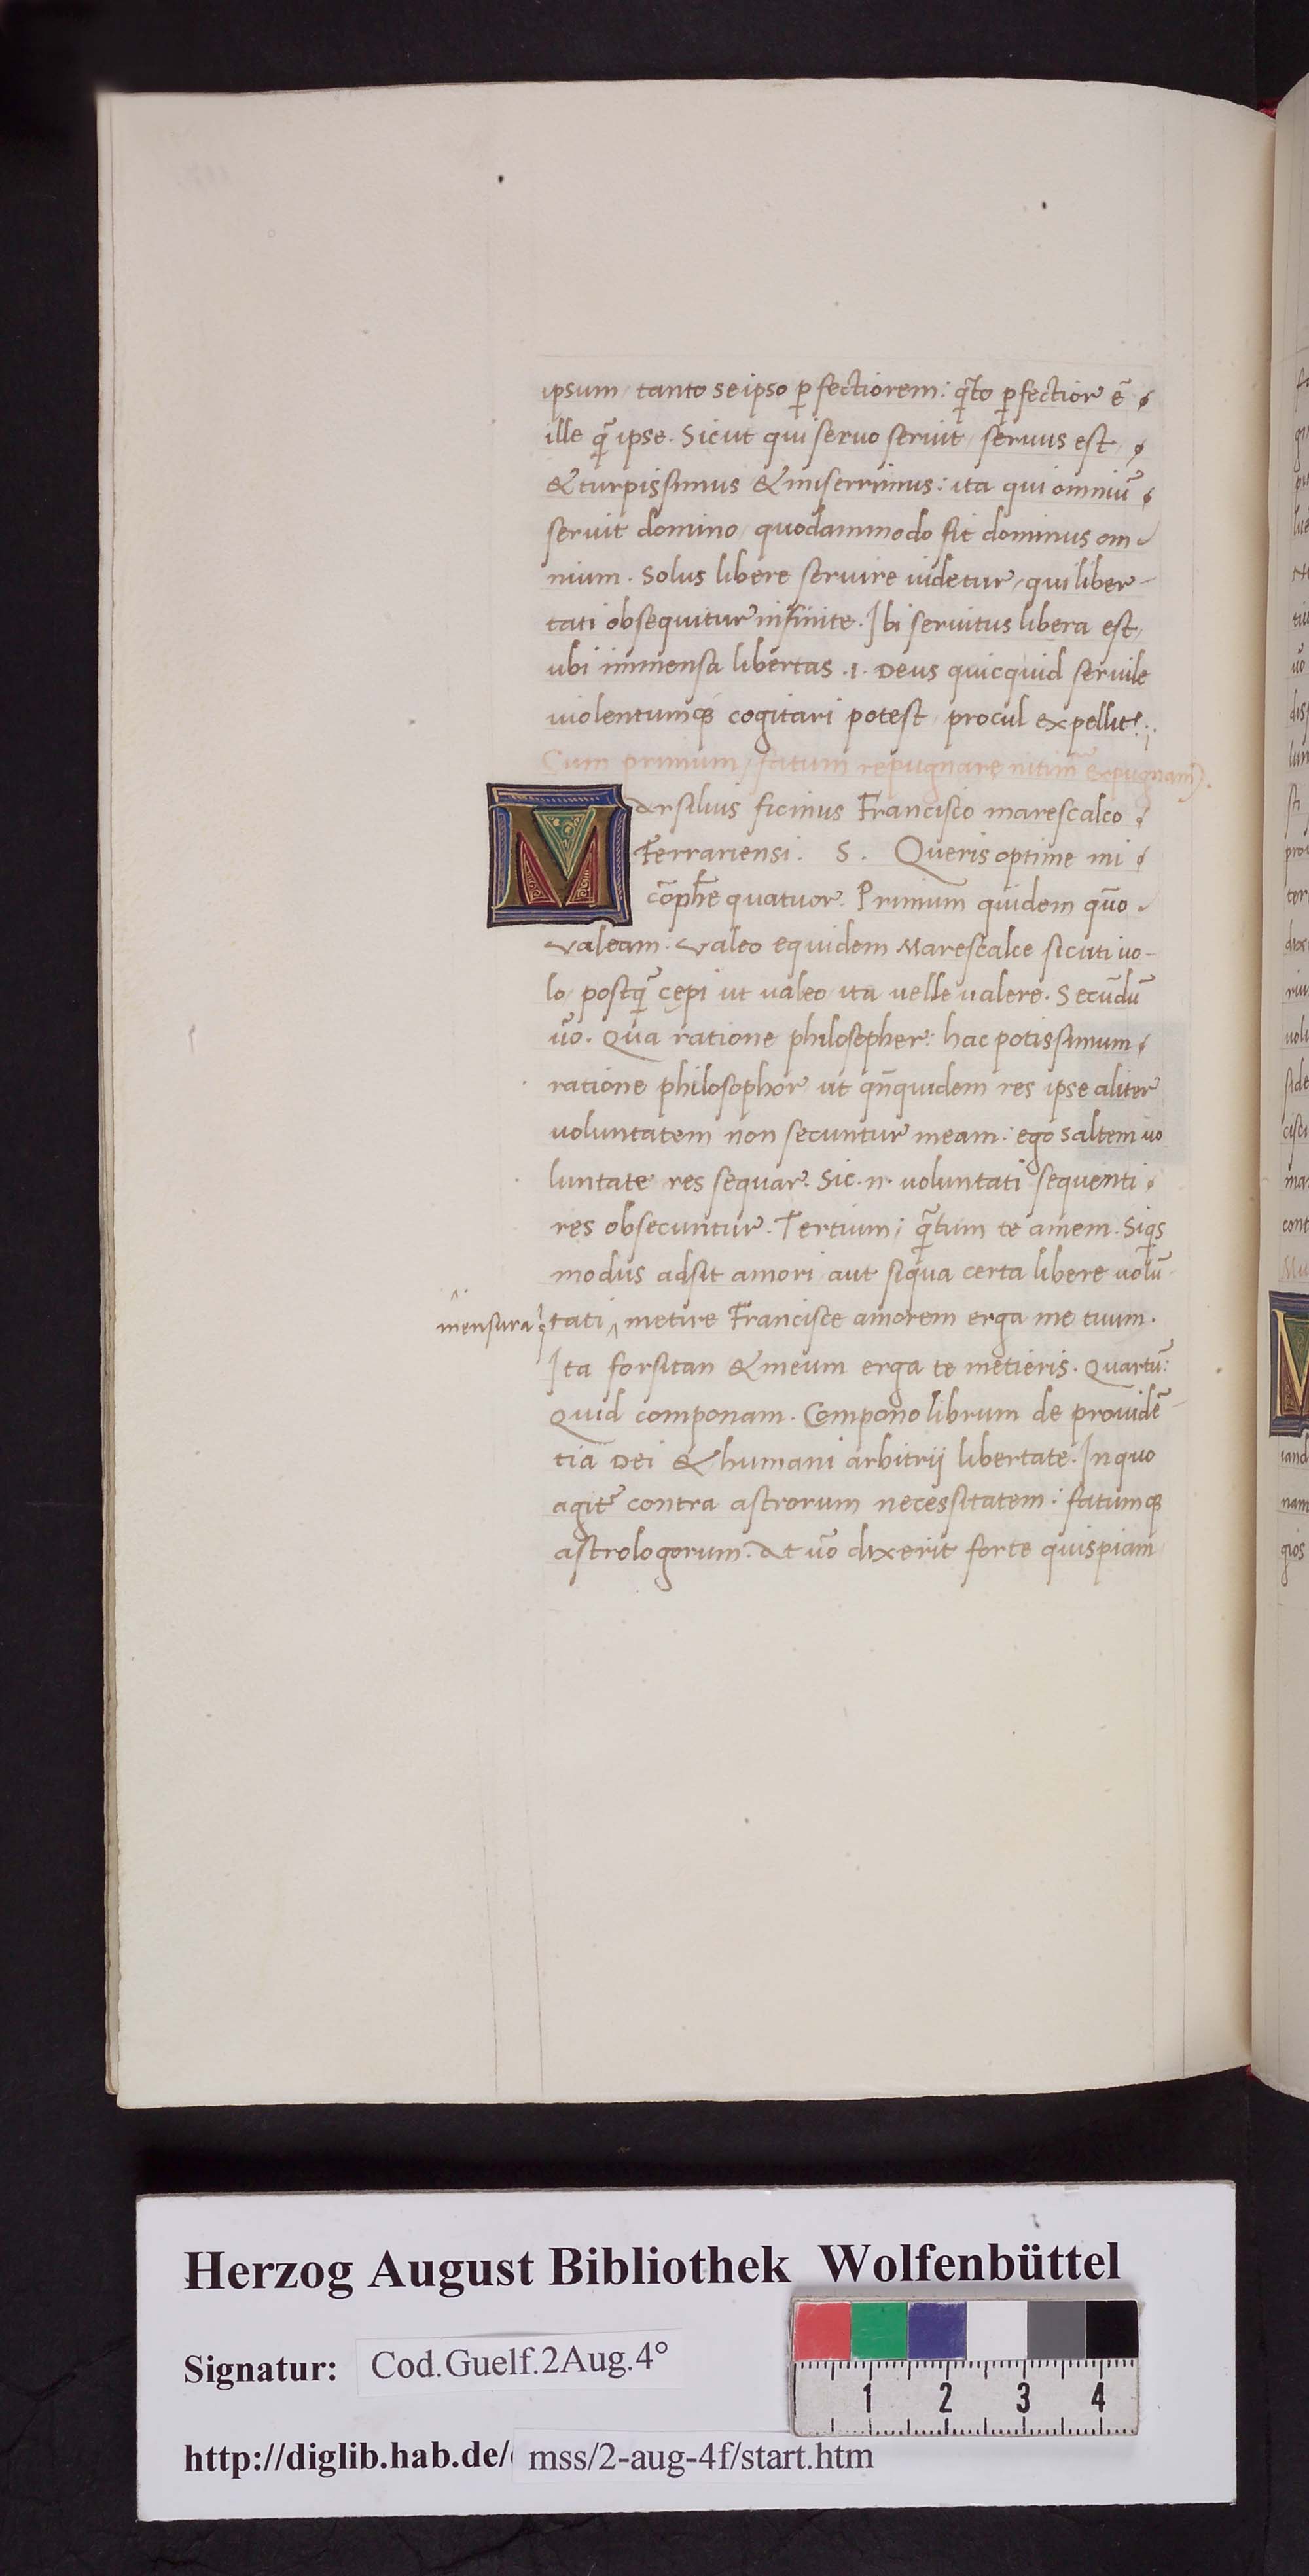 ipsum / tanto seipso ꝑfectiorem: q̃to ꝑfectior ẽ
ille q̃ ipse. Sicut qui seruo seruit / seruus est
& turpissimus & miserrimus: ita qui omniũ
seruit domino / quodammodo fit dominus om
nium. Solus libere seruire uidetur / qui liber-
tati obsequitur infinite. Ibi seruitus libera est /
ubi immensa libertas .i. Deus quicquid seruile
uiolentumq; cogitari potest / procul expellit.
Cum primum / fatum repugnare nitim̃ expugnam̃.
Marsilius ficinus Francisco marescalco
Ferrariensi. S. Queris optime mi
cõphĩe quatuor. Primum quidem quõ
valeam. Valeo equidem Marescalce sicuti uo-
lo / postq̃ cępi ut ualeo / ita uelle ualere. Secũdũ
uõ. Qua ratione philosopher: hac potissimum
ratione philosophor ut qñquidem res ipse aliter
uoluntatem non secuntur meam: ego saltem uo
luntate res sequar. Sic .n. uoluntati sequenti
res obsecuntur. Tertium; q̃tum te amem. Siq̃s
modus adsit amori aut siqua certa libere uolũ
mensura
tati ‸ metire Francisce amorem erga me tuum.
Ita forsitan & meum erga te metieris. Quartũ:
Quid componam. Compono librum de prouidẽ
tia Dei & humani arbitrij libertate. In quo
agit̃ contra astrorum necessitatem: fatumq;
astrologorum. At uõ dixerit forte quispiam
Herzog August Bibliothek Wolfenbüttel
Signatur: Cod.Guelf.2Aug.4°
1 2 3 4
http://diglib.hab.de/ mss/2-aug-4f/start.htm